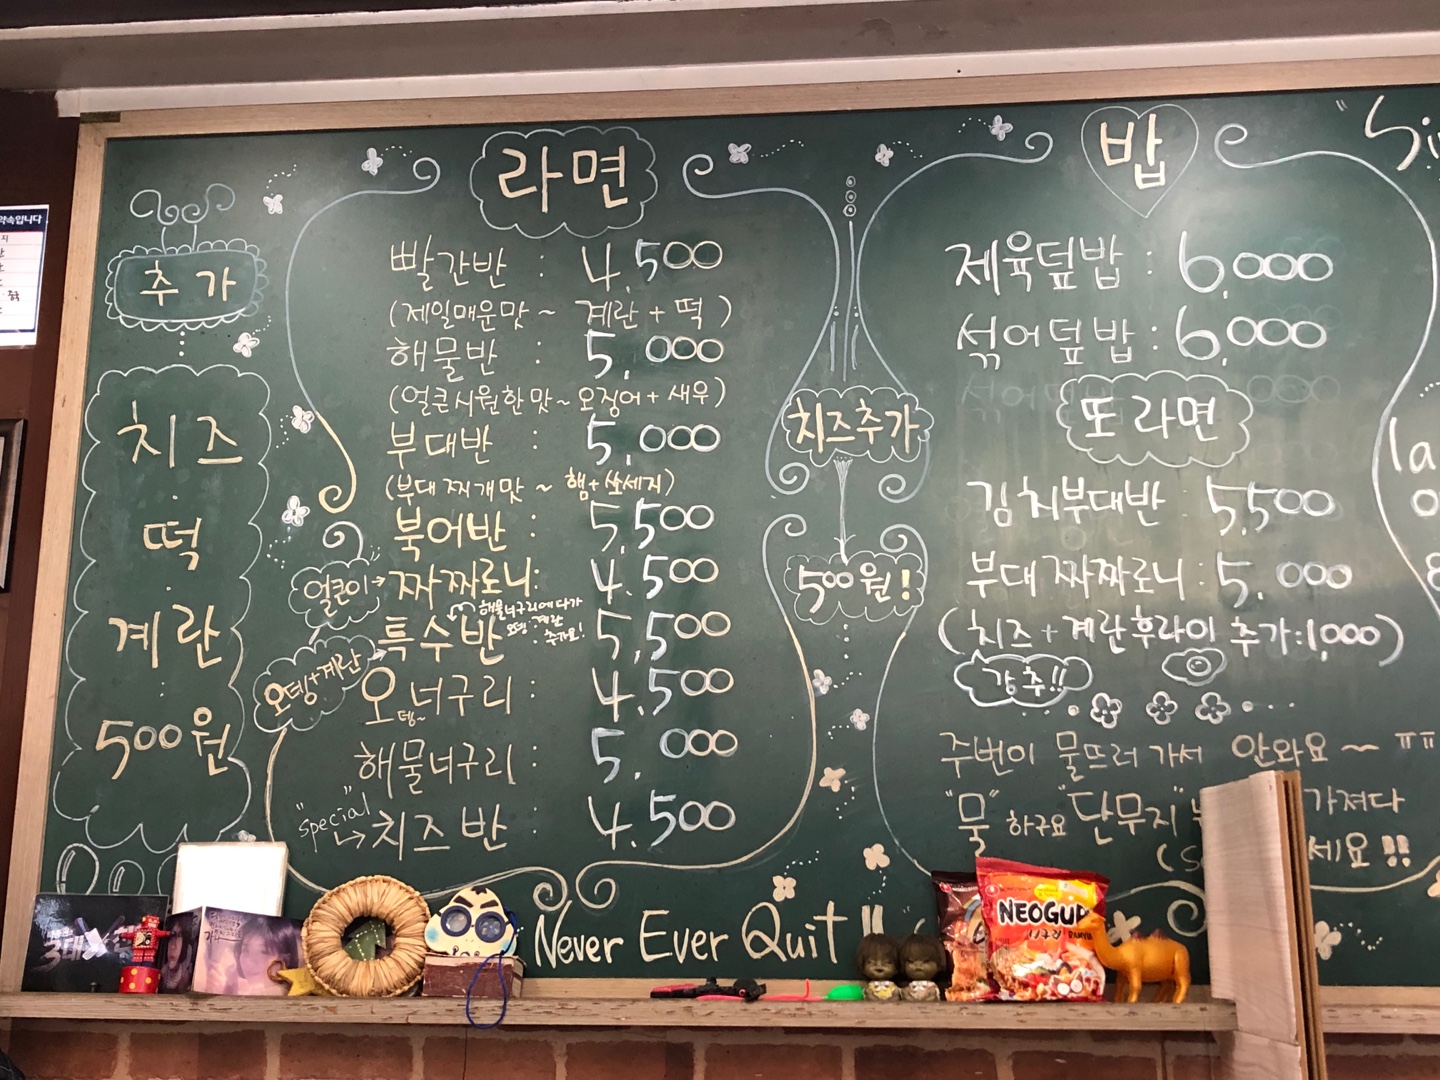 약속입니다
추가
치즈
떡
계란
500원
라면
빨간반 : 4,500
(제일매운맛 ~ 계란 + 떡)
해물반 : 5,000
(얼큰시원한맛 ~ 오징어 + 새우)
부대반 : 5,000
(부대찌개맛 ~ 햄 + 쏘세지)
북어반 : 5,500
얼큰이 → 짜짜로니 : 4,500
해물너구리에다가
오뎅, 계란
추가요!
특수반 : 5,500
오뎅+계란
오뎅~너구리 : 4,500
해물너구리 : 5,000
"special" → 치즈반 : 4,500
치즈추가
500원!
밥
제육덮밥 : 6,000
섞어덮밥 : 6,000
또 라면
김치부대반 : 5,500
부대짜짜로니 : 5,000
(치즈 + 계란후라이 추가 : 1,000)
강추!!
주번이 물뜨러 가서 안와요 ~ ㅠㅠ
"물" 하구요 "단무지" 가져다
세요!!
Never Ever Quit !!
NEOGURI
너구리 RAMYUN